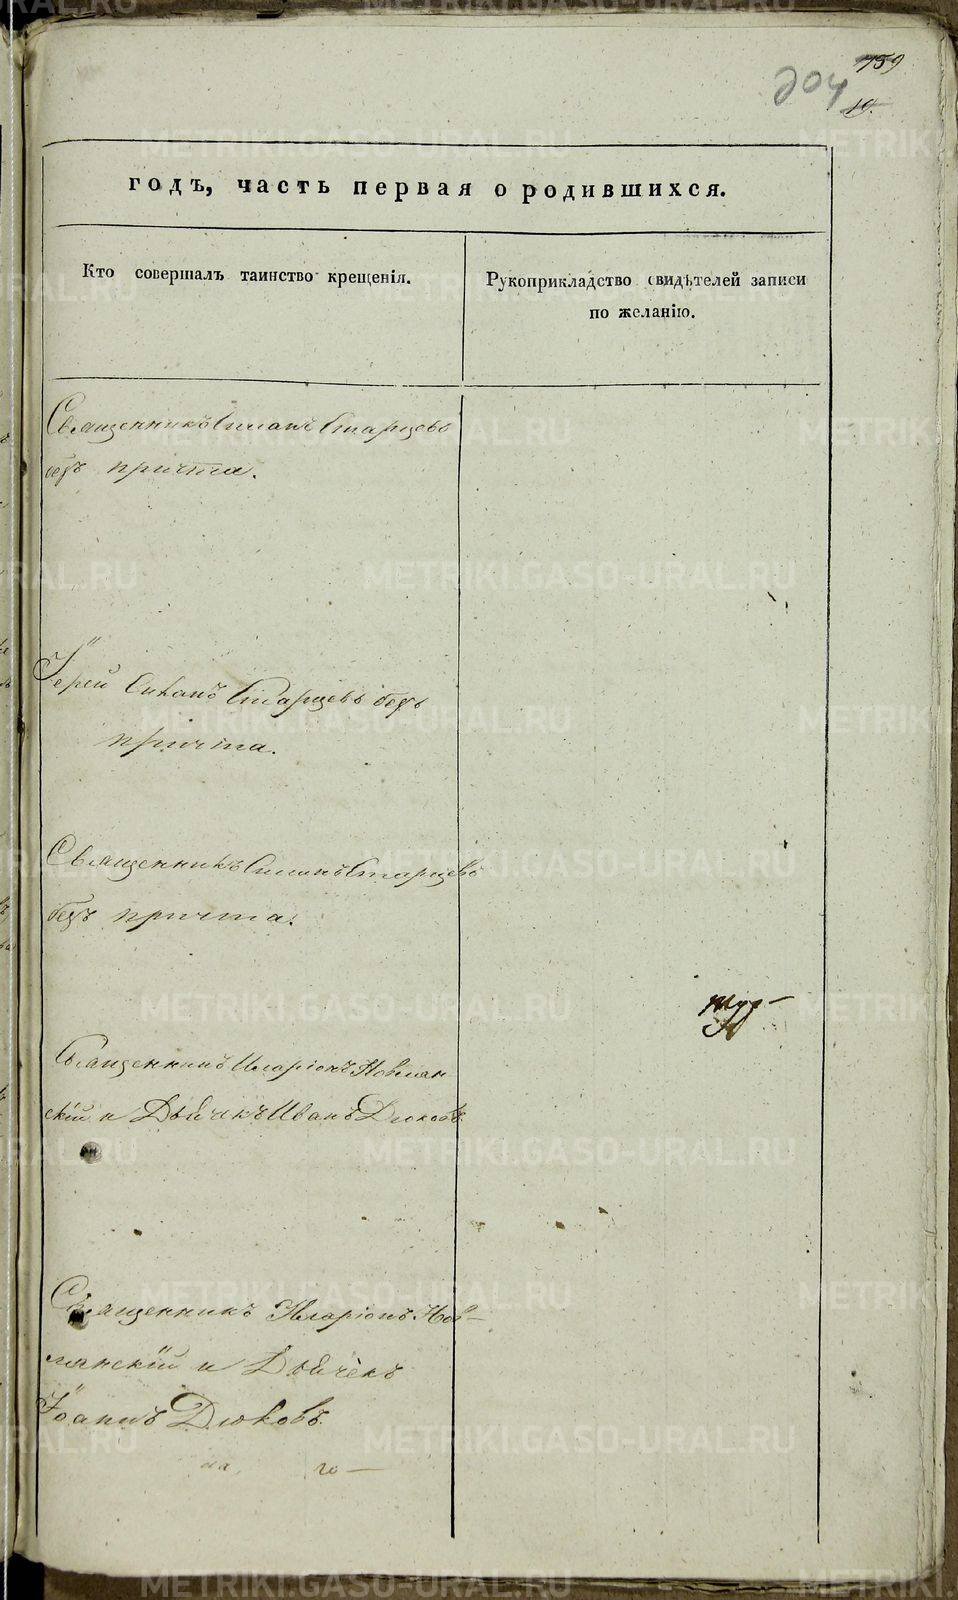 759
204
19.
годъ, часть первая о родившихся.
Кто совершалъ таинство крещенія.
Рукоприкладство свидѣтелей записи
по желанію.
Священникъ Симонъ Старцевъ
безъ причта.
Іерей Симонъ Старцевъ безъ
причта.
Священникъ Симонъ Старцевъ
безъ причта.
Священникъ Иларіонъ Новлян
скій и Дьячекъ Иванъ Дюковъ.
Священникъ Иларіонъ Нов-
лянскій и Дьячекъ
Іоаннъ Дюковъ
METRIKI.GASO-URAL.RU